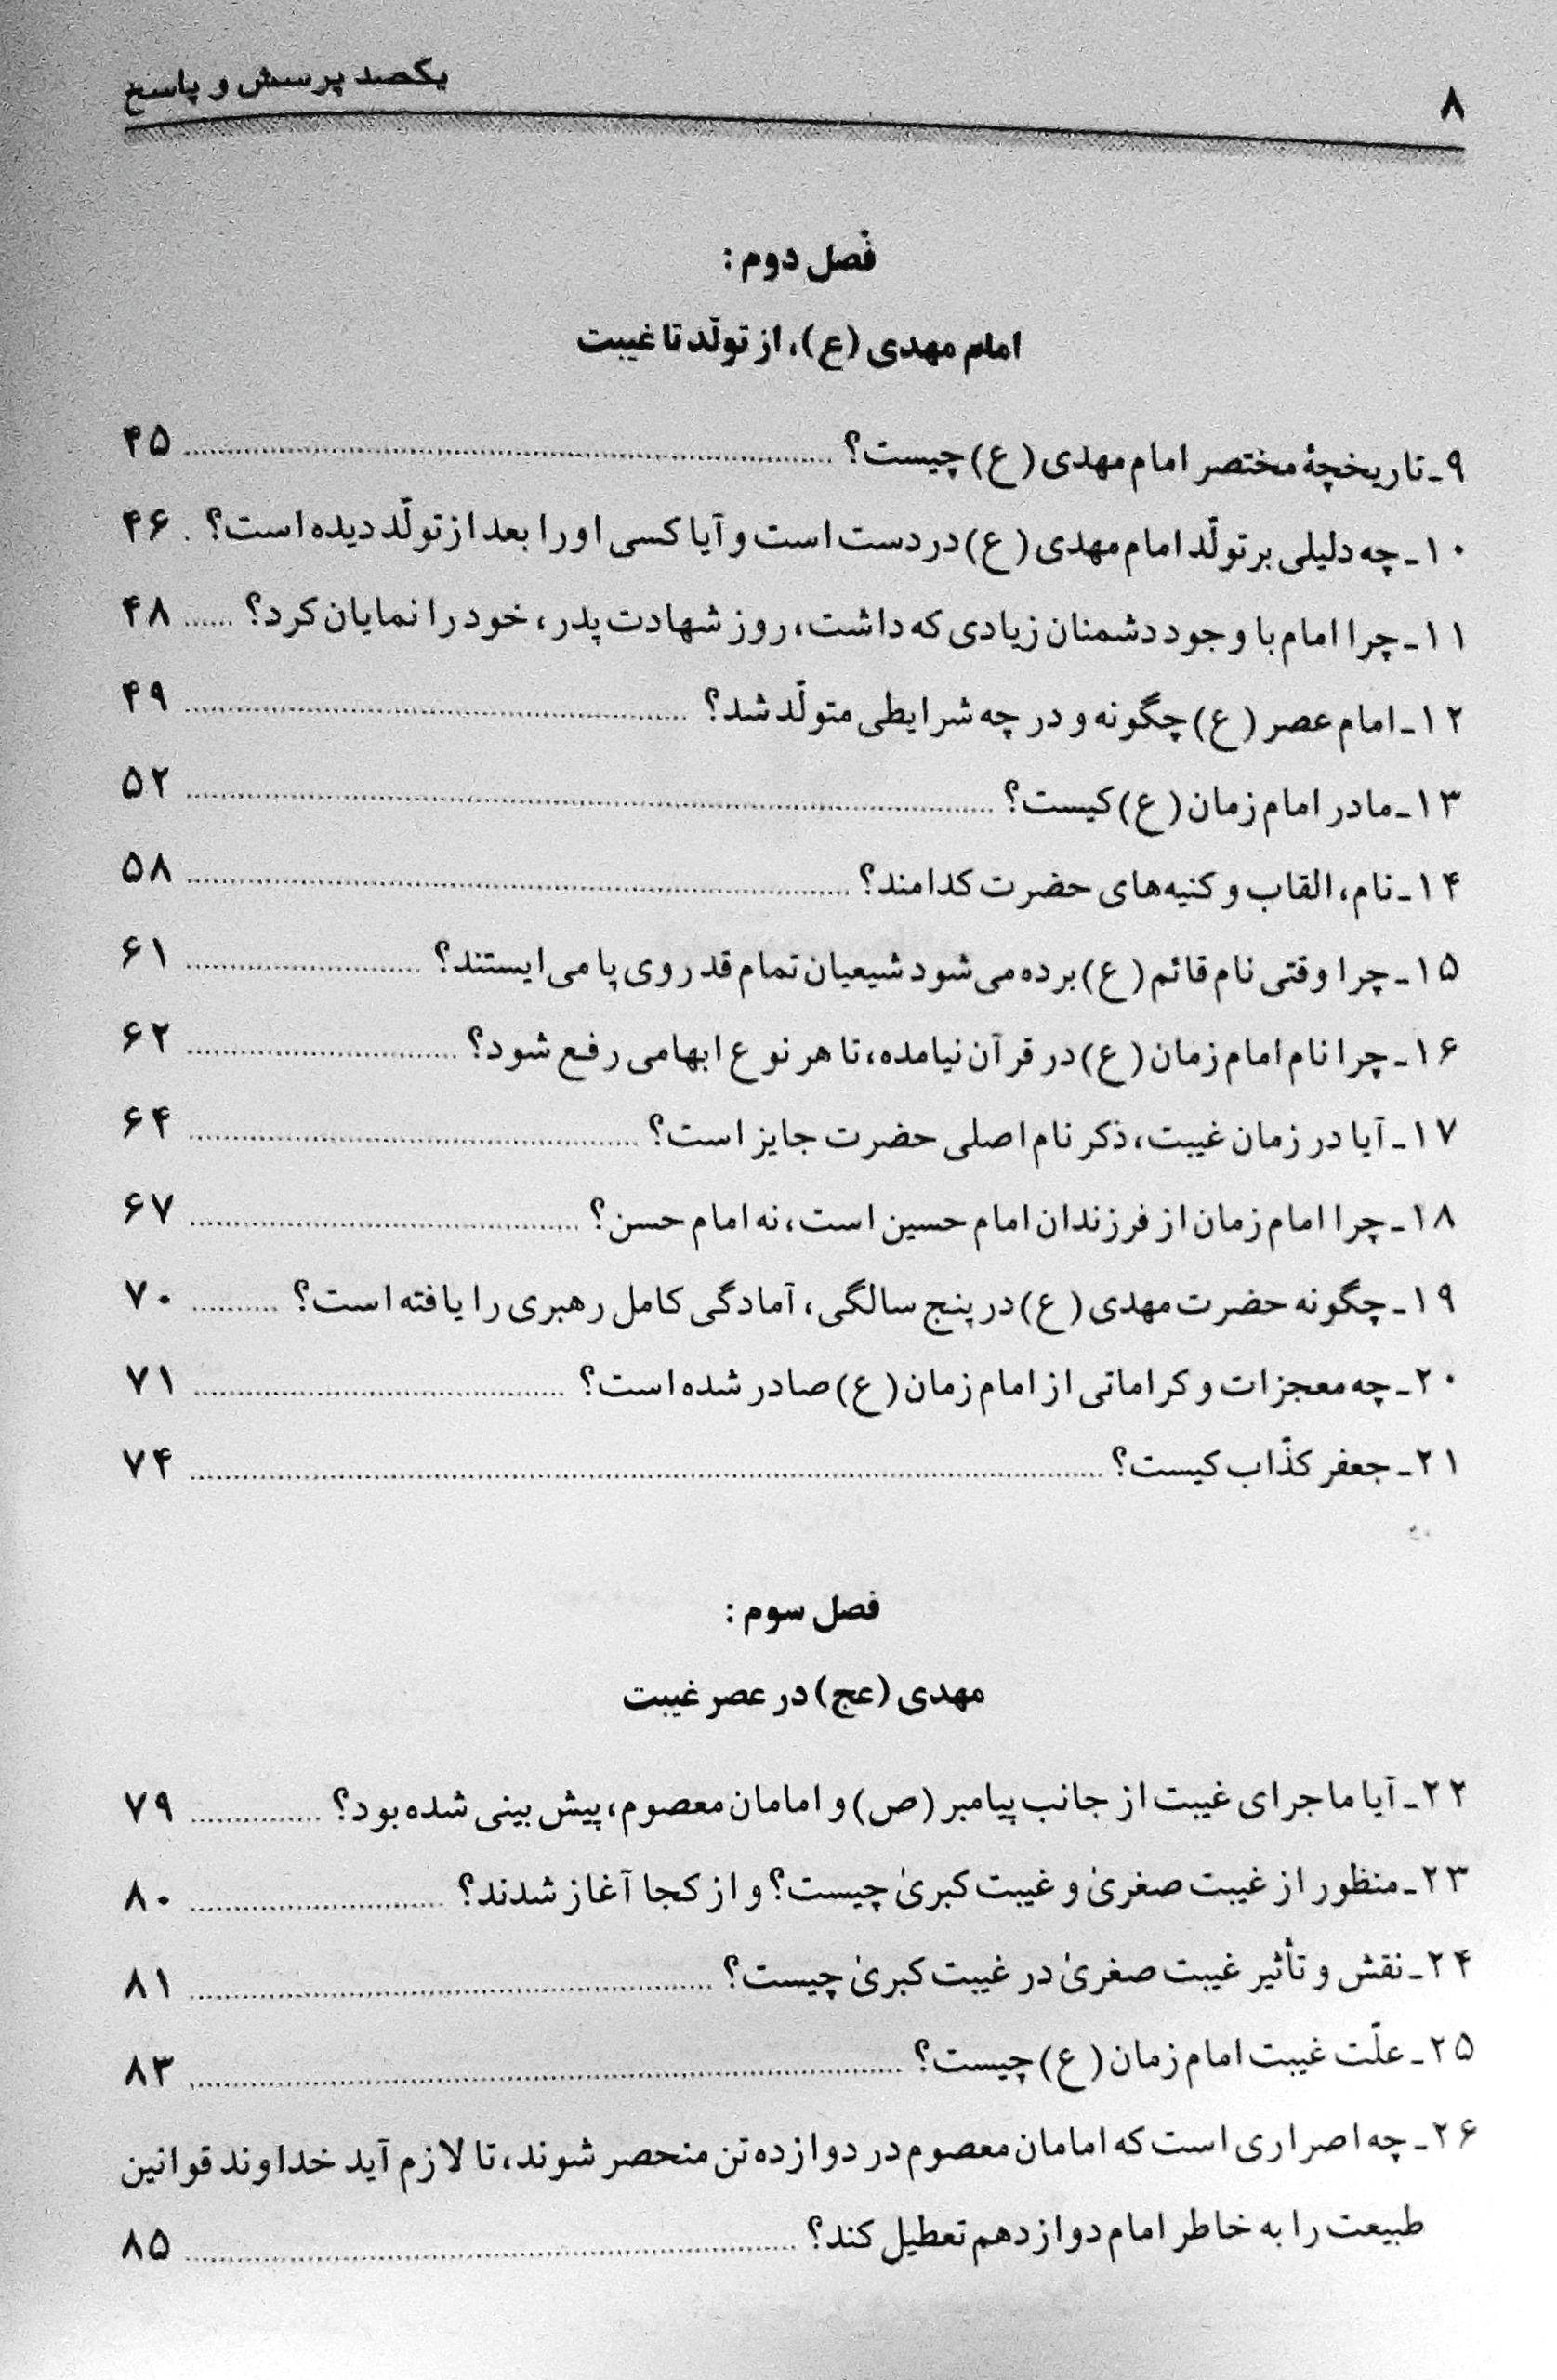 ۸
یکصد پرسش و پاسخ
فصل دوم :
امام مهدی (ع)، از تولّد تا غیبت
۹ـ تاریخچهٔ مختصر امام مهدی (ع) چیست؟ ........................ ۴۵
۱۰ـ چه دلیلی بر تولّد امام مهدی (ع) در دست است و آیا کسی او را بعد از تولّد دیده است؟ . ۴۶
۱۱ـ چرا امام با وجود دشمنان زیادی که داشت، روز شهادت پدر، خود را نمایان کرد؟ ...... ۴۸
۱۲ـ امام عصر (ع) چگونه و در چه شرایطی متولّد شد؟ ........................ ۴۹
۱۳ـ مادر امام زمان (ع) کیست؟ ........................ ۵۲
۱۴ـ نام، القاب و کنیه‌های حضرت کدامند؟ ........................ ۵۸
۱۵ـ چرا وقتی نام قائم (ع) برده می‌شود شیعیان تمام قد روی پا می‌ایستند؟ ........................ ۶۱
۱۶ـ چرا نام امام زمان (ع) در قرآن نیامده، تا هر نوع ابهامی رفع شود؟ ........................ ۶۲
۱۷ـ آیا در زمان غیبت، ذکر نام اصلی حضرت جایز است؟ ........................ ۶۴
۱۸ـ چرا امام زمان از فرزندان امام حسین است، نه امام حسن؟ ........................ ۶۷
۱۹ـ چگونه حضرت مهدی (ع) در پنج سالگی، آمادگی کامل رهبری را یافته است؟ ........... ۷۰
۲۰ـ چه معجزات و کراماتی از امام زمان (ع) صادر شده است؟ ........................ ۷۱
۲۱ـ جعفر کذّاب کیست؟ ........................ ۷۴
فصل سوم :
مهدی (عج) در عصر غیبت
۲۲ـ آیا ماجرای غیبت از جانب پیامبر (ص) و امامان معصوم، پیش بینی شده بود؟ .............. ۷۹
۲۳ـ منظور از غیبت صغریٰ و غیبت کبریٰ چیست؟ و از کجا آغاز شدند؟ ........................ ۸۰
۲۴ـ نقش و تأثیر غیبت صغریٰ در غیبت کبریٰ چیست؟ ........................ ۸۱
۲۵ـ علّت غیبت امام زمان (ع) چیست؟ ........................ ۸۳
۲۶ـ چه اصراری است که امامان معصوم در دوازده تن منحصر شوند، تا لازم آید خداوند قوانین
طبیعت را به خاطر امام دوازدهم تعطیل کند؟ ........................ ۸۵